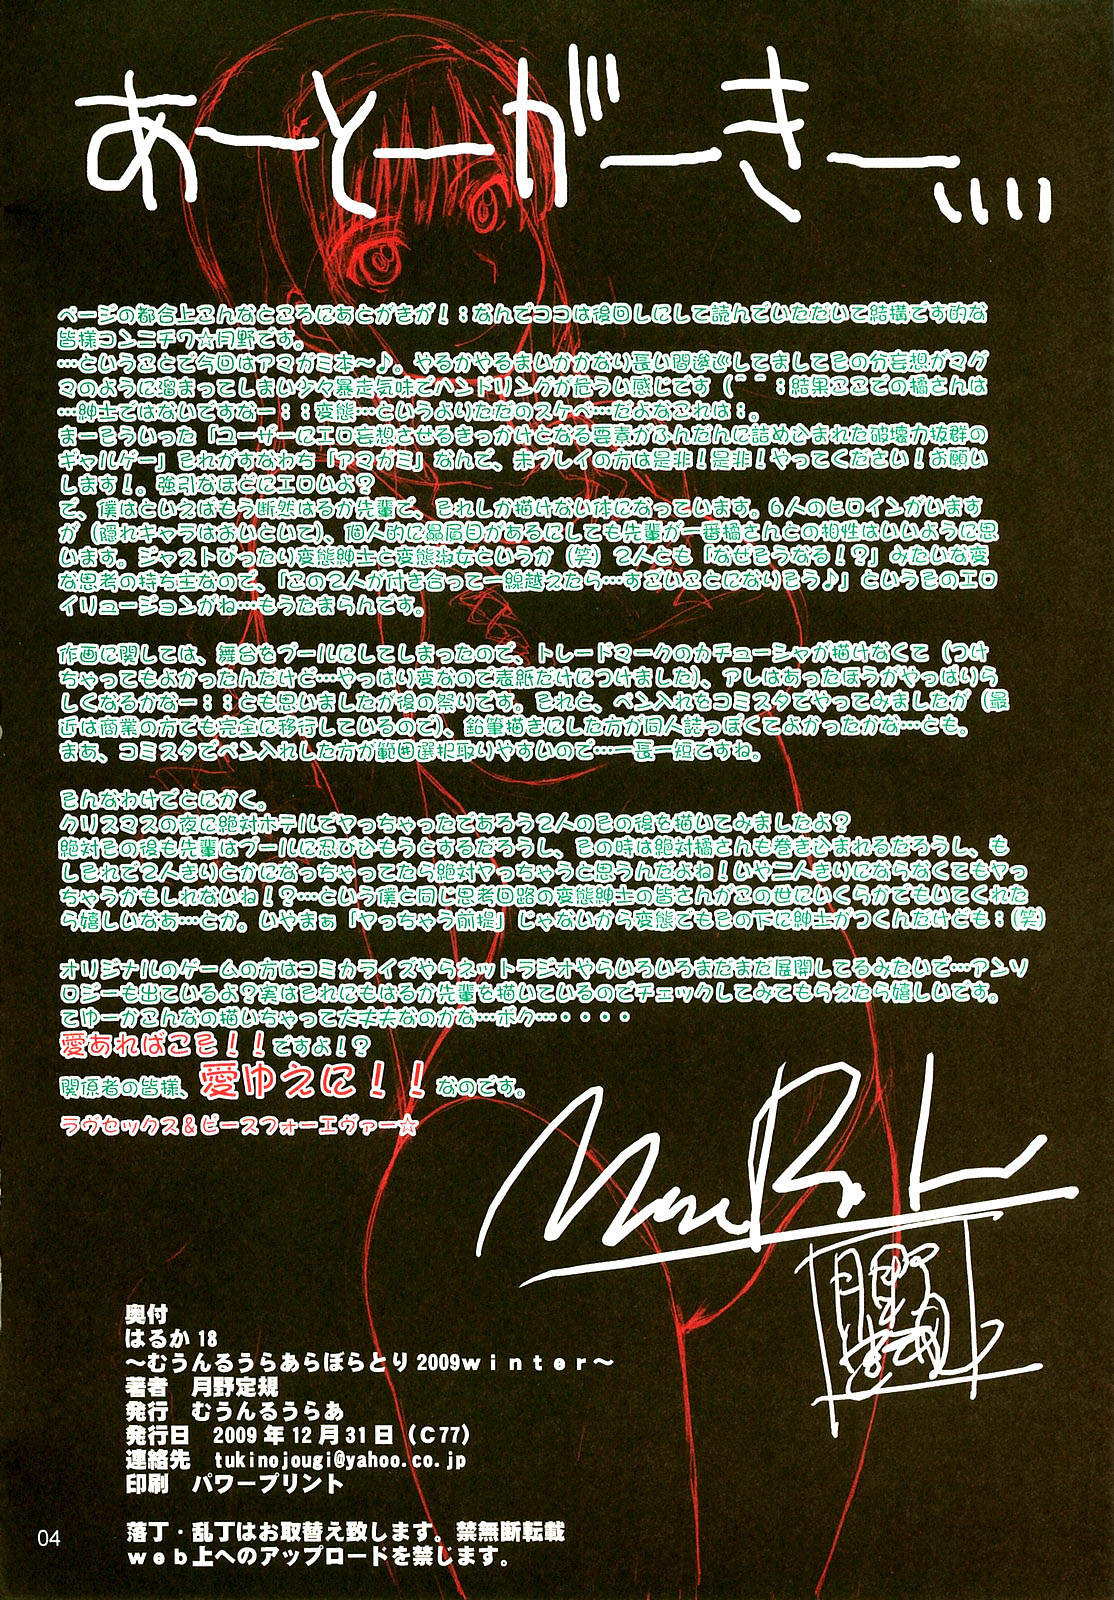 あーとーがーきー,,,,
ページの都合上こんなところにあとがきが！；なんでココは後回しにして読んでいただいて結構です的な
皆様コンニチワ☆月野です。
…ということで今回はアマガミ本～♪。やるかやるまいかかなり長い間逡巡してましてその分妄想がマグ
マのように溜まってしまい少々暴走気味でハンドリングが危うい感じです（＾＾；結果ここでの橘さんは
…紳士ではないですなー；；変態…というよりただのスケベ…だよなこれは；。
まーそういった「ユーザーにエロ妄想させるきっかけとなる要素がふんだんに詰め込まれた破壊力抜群の
ギャルゲー」それがすなわち「アマガミ」なんで、未プレイの方は是非！是非！やってください！お願い
します！。強引なほどにエロいよ？
で、僕はといえばもう断然はるか先輩で、それしか描けない体になっています。6人のヒロインがいます
が（隠れキャラはおいといて）、個人的に贔屓目があるにしても先輩が一番橘さんとの相性はいいように思
います。ジャストぴったり変態紳士と変態淑女というか（笑）2人とも「なぜそうなる！？」みたいな変
な思考の持ち主なので、「この2人が付き合って一線越えたら…すごいことになりそう♪」というそのエロ
イリュージョンがね…もうたまらんです。
作画に関しては、舞台をプールにしてしまったので、トレードマークのカチューシャが描けなくて（つけ
ちゃってもよかったんだけど…やっぱり変なので表紙だけにつけました）、アレはあったほうがやっぱりら
しくなるかなー；；とも思いましたが後の祭りです。それと、ペン入れをコミスタでやってみましたが（最
近は商業の方でも完全に移行しているので）、鉛筆描きにした方が同人誌っぽくてよかったかな…とも。
まあ、コミスタでペン入れした方が範囲選択取りやすいので…一長一短ですね。
そんなわけでとにかく。
クリスマスの夜に絶対ホテルでヤっちゃったであろう2人のその後を描いてみましたよ？
絶対その後も先輩はプールに忍び込もうとするだろうし、その時は絶対橘さんも巻き込まれるだろうし、も
しそれで2人きりとかになっちゃってたら絶対ヤっちゃうと思うんだよね！いや二人きりにならなくてもヤっ
ちゃうかもしれないね！？…という僕と同じ思考回路の変態紳士の皆さんがこの世にいくらかでもいてくれた
ら嬉しいなあ…とか。いやまぁ「ヤっちゃう前提」じゃないから変態でもその下に紳士がつくんだけども；(笑)
オリジナルのゲームの方はコミカライズやらネットラジオやらいろいろまだまだ展開してるみたいで…アンソ
ロジーも出ているよ？実はそれにもはるか先輩を描いているのでチェックしてみてもらえたら嬉しいです。
てゆーかこんなの描いちゃって大丈夫なのかな…ボク…・・・・
愛あればこそ！！ですよ！？
関係者の皆様、愛ゆえに！！なのです。
ラヴセックス＆ピースフォーエヴァー☆
奥付
はるか18
～むうんるうらあらぼらとり2009winter～
著者　月野定規
発行　むうんるうらあ
発行日　2009年12月31日（C77）
連絡先　tukinojougi@yahoo.co.jp
印刷　パワープリント
落丁・乱丁はお取替え致します。禁無断転載
web上へのアップロードを禁じます。
04